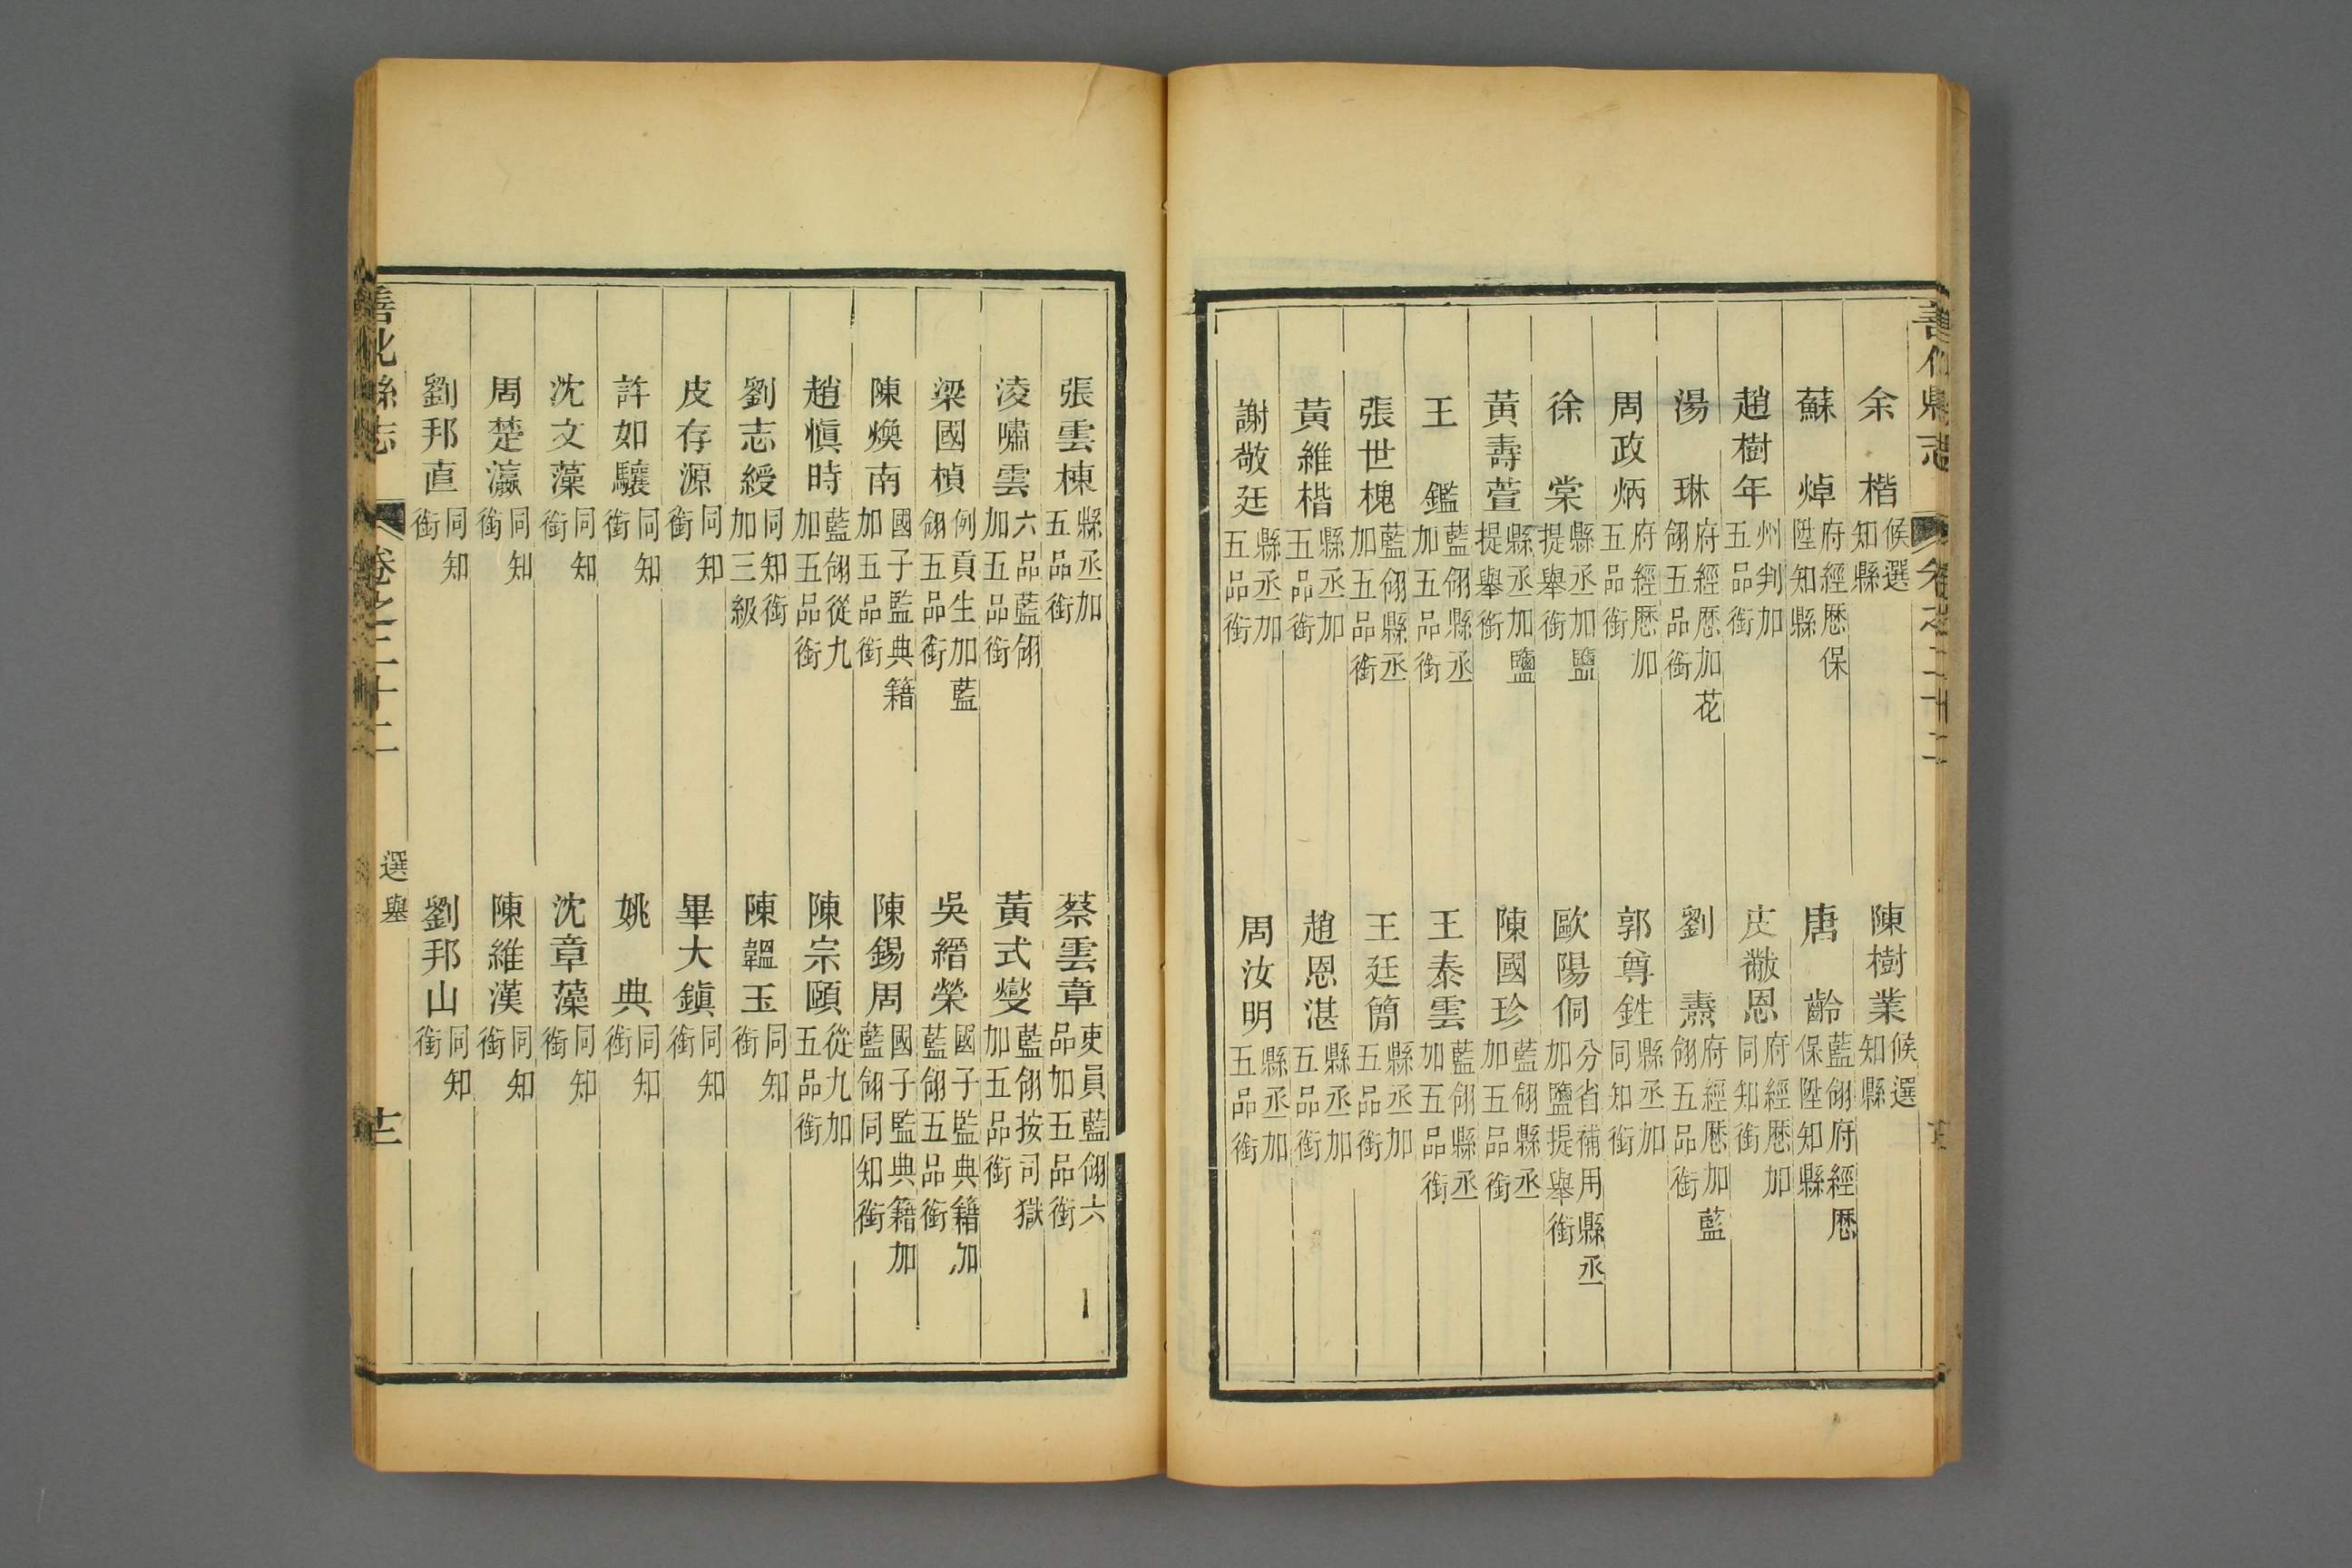 善化縣志 卷之二十二
余楷 候選知縣 陳樹業 候選知縣
蘇焯 府經歷保陞知縣 唐齡 藍翎府經歷保陞知縣
趙樹年 州判加五品銜 皮黻恩 府經歷加同知銜
湯琳 府經歷加花翎五品銜 劉燾 府經歷加藍翎五品銜
周政炳 府經歷加五品銜 郭尊銋 縣丞加同知銜
徐棠 縣丞加鹽提舉銜 歐陽侗 分省補用縣丞加鹽提舉銜
黃壽萱 縣丞加鹽提舉銜 陳國珍 藍翎縣丞加五品銜
王鑑 藍翎縣丞加五品銜 王泰雲 藍翎縣丞加五品銜
張世槐 藍翎縣丞加五品銜 王廷簡 縣丞加五品銜
黃維楷 縣丞加五品銜 趙恩湛 縣丞加五品銜
謝敬廷 縣丞加五品銜 周汝明 縣丞加五品銜
張雲棟 縣丞加五品銜 蔡雲章 吏員藍翎六品加五品銜
淩嘯雲 六品藍翎加五品銜 黃式燮 藍翎按司獄加五品銜
梁國楨 例貢生加藍翎五品銜 吳縉榮 國子監典籍加藍翎五品銜
陳煥南 國子監典籍加五品銜 陳錫周 國子監典籍加藍翎同知銜
趙愼時 藍翎從九加五品銜 陳宗頤 從九加五品銜
劉志綬 同知銜加三級 陳韞玉 同知銜
皮存源 同知銜 畢大鎭 同知銜
許如驤 同知銜 姚典 同知銜
沈文藻 同知銜 沈章藻 同知銜
周楚瀛 同知銜 陳維漢 同知銜
劉邦直 同知銜 劉邦山 同知銜
善化縣志 卷之二十二 選舉 十二